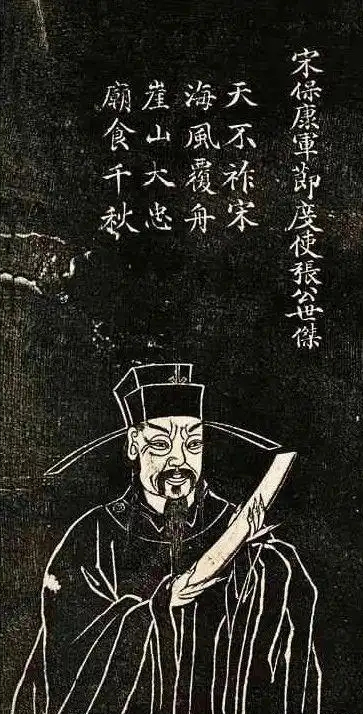 宋保康軍節度使張公世傑
天不祚宋
海風覆舟
崖山大忠
廟食千秋